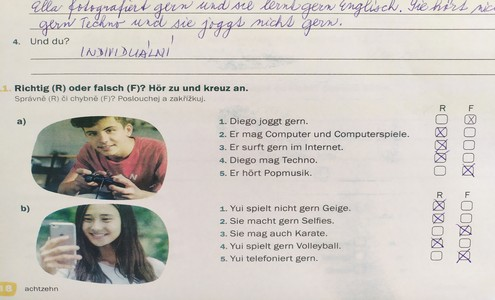 Ella fotografiert gern und sie lernt gern Englisch. Sie hört
gern Techno und sie joggt nicht gern.
4. Und du?
INDIVIDUÁLNÍ
Richtig (R) oder falsch (F)? Hör zu und kreuz an.
Správně (R) či chybně (F)? Poslouchej a zakřížkuj.
R F
a)
1. Diego joggt gern.
2. Er mag Computer und Computerspiele.
3. Er surft gern im Internet.
4. Diego mag Techno.
5. Er hört Popmusik.
R F
b)
1. Yui spielt nicht gern Geige.
2. Sie macht gern Selfies.
3. Sie mag auch Karate.
4. Yui spielt gern Volleyball.
5. Yui telefoniert gern.
achtzehn